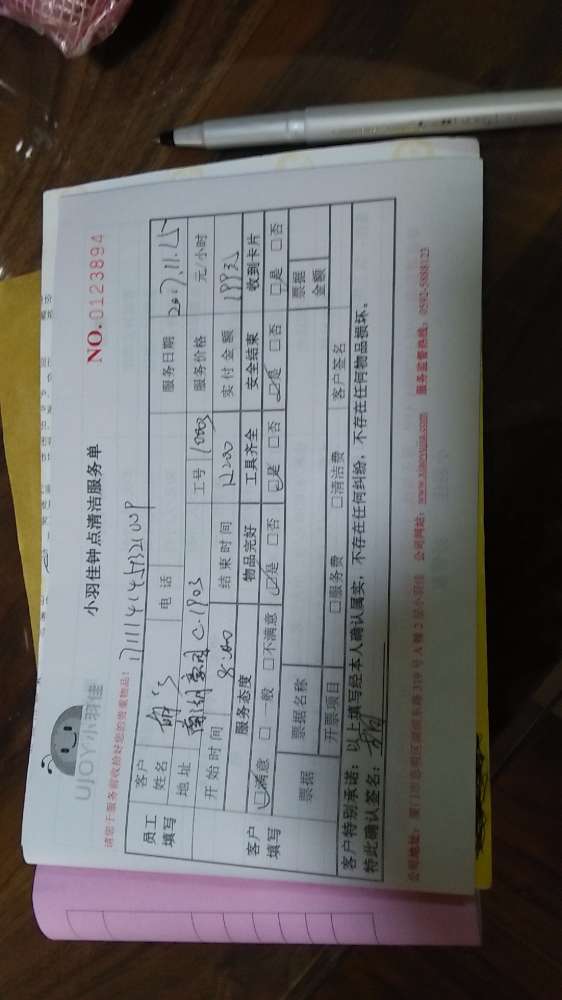 UJOY小羽佳
小羽佳钟点清洁服务单
NO.0123894
请您于服务前收拾好您的贵重物品!
员工填写
客户姓名
电话
服务日期 2017.11.25
地址 C.1903
工号
服务价格 元/小时
开始时间 8:00
结束时间 12:00
实付金额 199元
客户填写
服务态度 物品完好 工具齐全 安全结束 收到卡片
满意 一般 不满意 是 否 是 否 是 否 是 否
票据 票据名称 票据金额
开票项目 服务费 清洁费 客户签名
客户特别承诺:以上填写经本人确认属实,不存在任何纠纷,不存在任何物品损坏。
特此确认签名:
公司网站:www.xiaoyujia.com 服务监督热线:0592-5888123